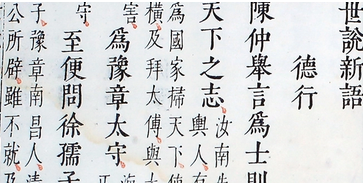 世說新語
德行
陳仲舉言爲士則
天下之志
汝南先
輿人有
爲國家掃天下
橫及拜太傅與
害
爲豫章太守
守
至便問徐孺子
子豫章南昌人清
公所辟雖不就及